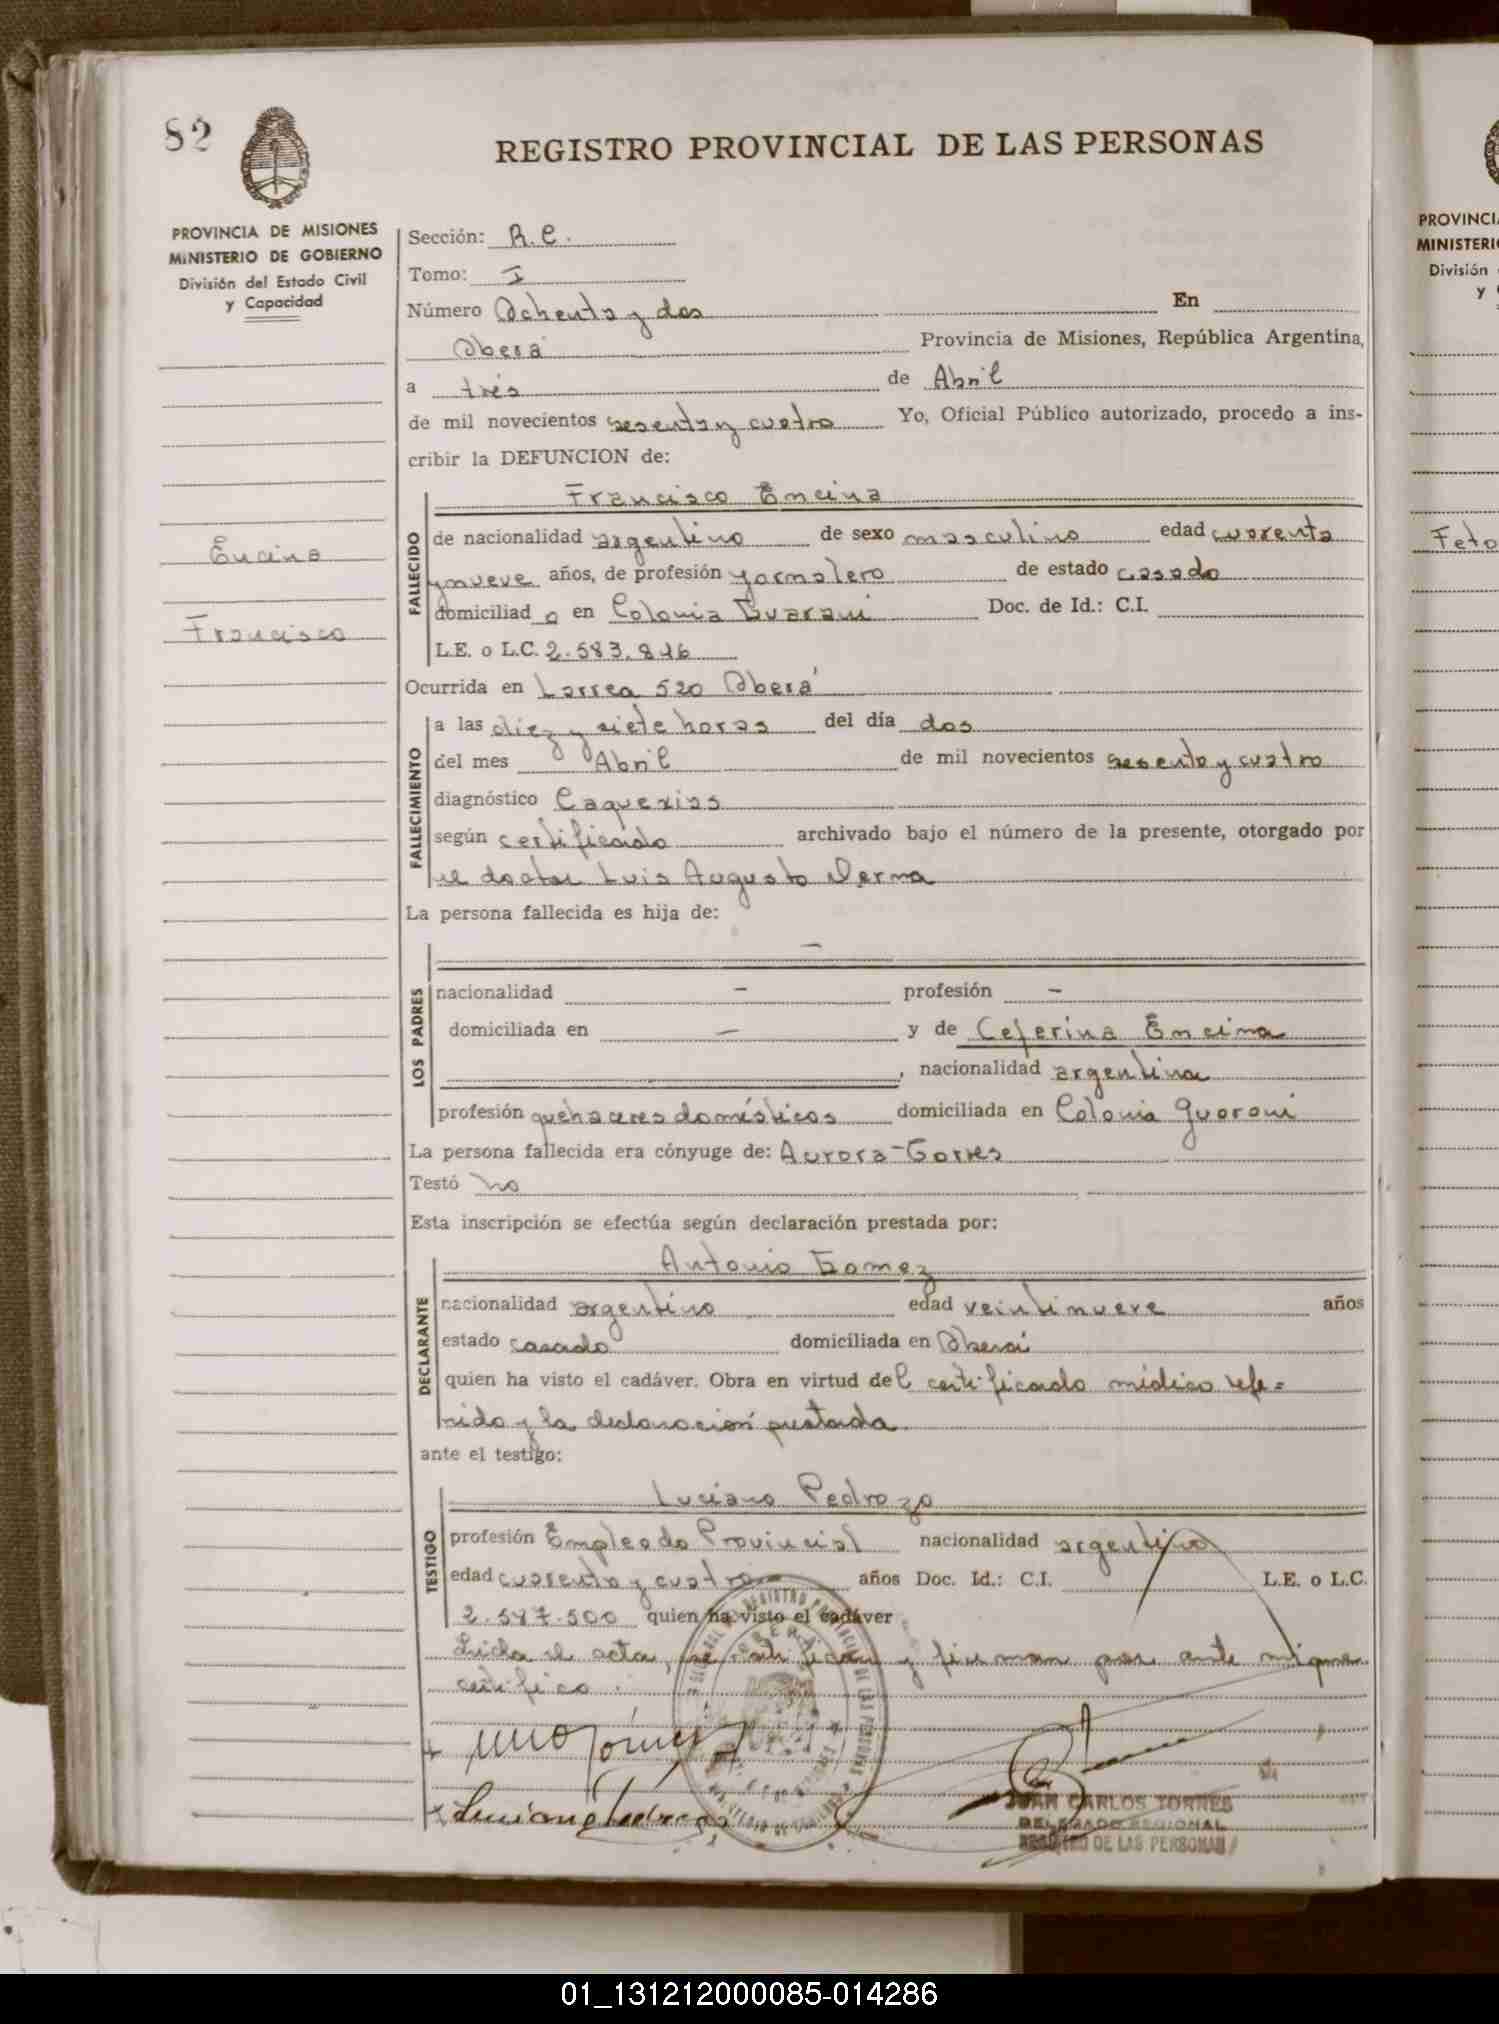 82
REGISTRO PROVINCIAL DE LAS PERSONAS
PROVINCIA DE MISIONES
MINISTERIO DE GOBIERNO
División del Estado Civil
y Capacidad
Encina
Francisco
Sección: R.C.
Tomo: I
Número Ochenta y dos En
Oberá Provincia de Misiones, República Argentina,
a tres de Abril
de mil novecientos sesenta y cuatro Yo, Oficial Público autorizado, procedo a ins-
cribir la DEFUNCION de:
FALLECIDO
Francisco Encina
de nacionalidad argentino de sexo masculino edad cuarenta
y nueve años, de profesión jornalero de estado casado
domiciliad o en Colonia Guarani Doc. de Id.: C.I.
L.E. o L.C. 2.583.816
Ocurrida en Larrea 520 Oberá
FALLECIMIENTO
a las diez y siete horas del día dos
del mes Abril de mil novecientos sesenta y cuatro
diagnóstico Caquexias
según certificado archivado bajo el número de la presente, otorgado por
el doctor Luis Augusto Derna
La persona fallecida es hija de:
LOS PADRES
—
nacionalidad — profesión —
domiciliada en — y de Ceferina Encina
, nacionalidad argentina
profesión quehaceres domésticos domiciliada en Colonia Guarani
La persona fallecida era cónyuge de: Aurora Torres
Testó no
Esta inscripción se efectúa según declaración prestada por:
DECLARANTE
Antonio Gomez
nacionalidad argentino edad veintinueve años
estado casado domiciliada en Oberá
quien ha visto el cadáver. Obra en virtud del certificado médico refe=
rido y la declaración prestada
ante el testigo:
TESTIGO
Luciano Pedrozo
profesión Empleado Provincial nacionalidad argentino
edad cuarenta y cuatro años Doc. Id.: C.I. L.E. o L.C.
2.587.500 quien ha visto el cadáver
Leida el acta, se ratifican y firman por ante mi que
certifico.
JUAN CARLOS TORRES
DELEGADO REGIONAL
REGISTRO DE LAS PERSONAS
PROVINCI
MINISTERI
División
y
Feto
01_131212000085-014286